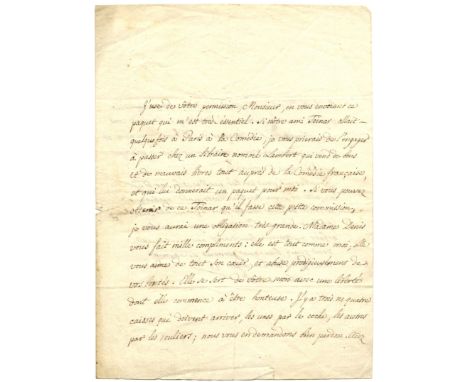 J'use de votre permission, Monsieur, en vous envoiant ce
paquet qui m'est très essentiel. Si notre ami Toinar allait
quelquefois à Paris à la Comédie, je vous prierais de l'engager
à passer chez un libraire nommé Lambert qui vend
de mauvais livres tout auprès de la Comédie française,
et qui lui donnerait un paquet pour moi. Si vous pouvez
obtenir de ce Toinar qu'il fasse cette petite commission,
je vous aurai une obligation très grande. Madame Denis
vous fait mille compliments: elle est tout comme moi, elle
vous aime de tout son cœur, et abuse prodigieusement de
vos bontés. Elle se sert de votre nom avec une liberté
dont elle commence à être honteuse. Il y a trois ou quatre
caisses qui doivent arriver, les unes par le coche, les autres
par les rouliers; nous vous en demandons bien pardon.